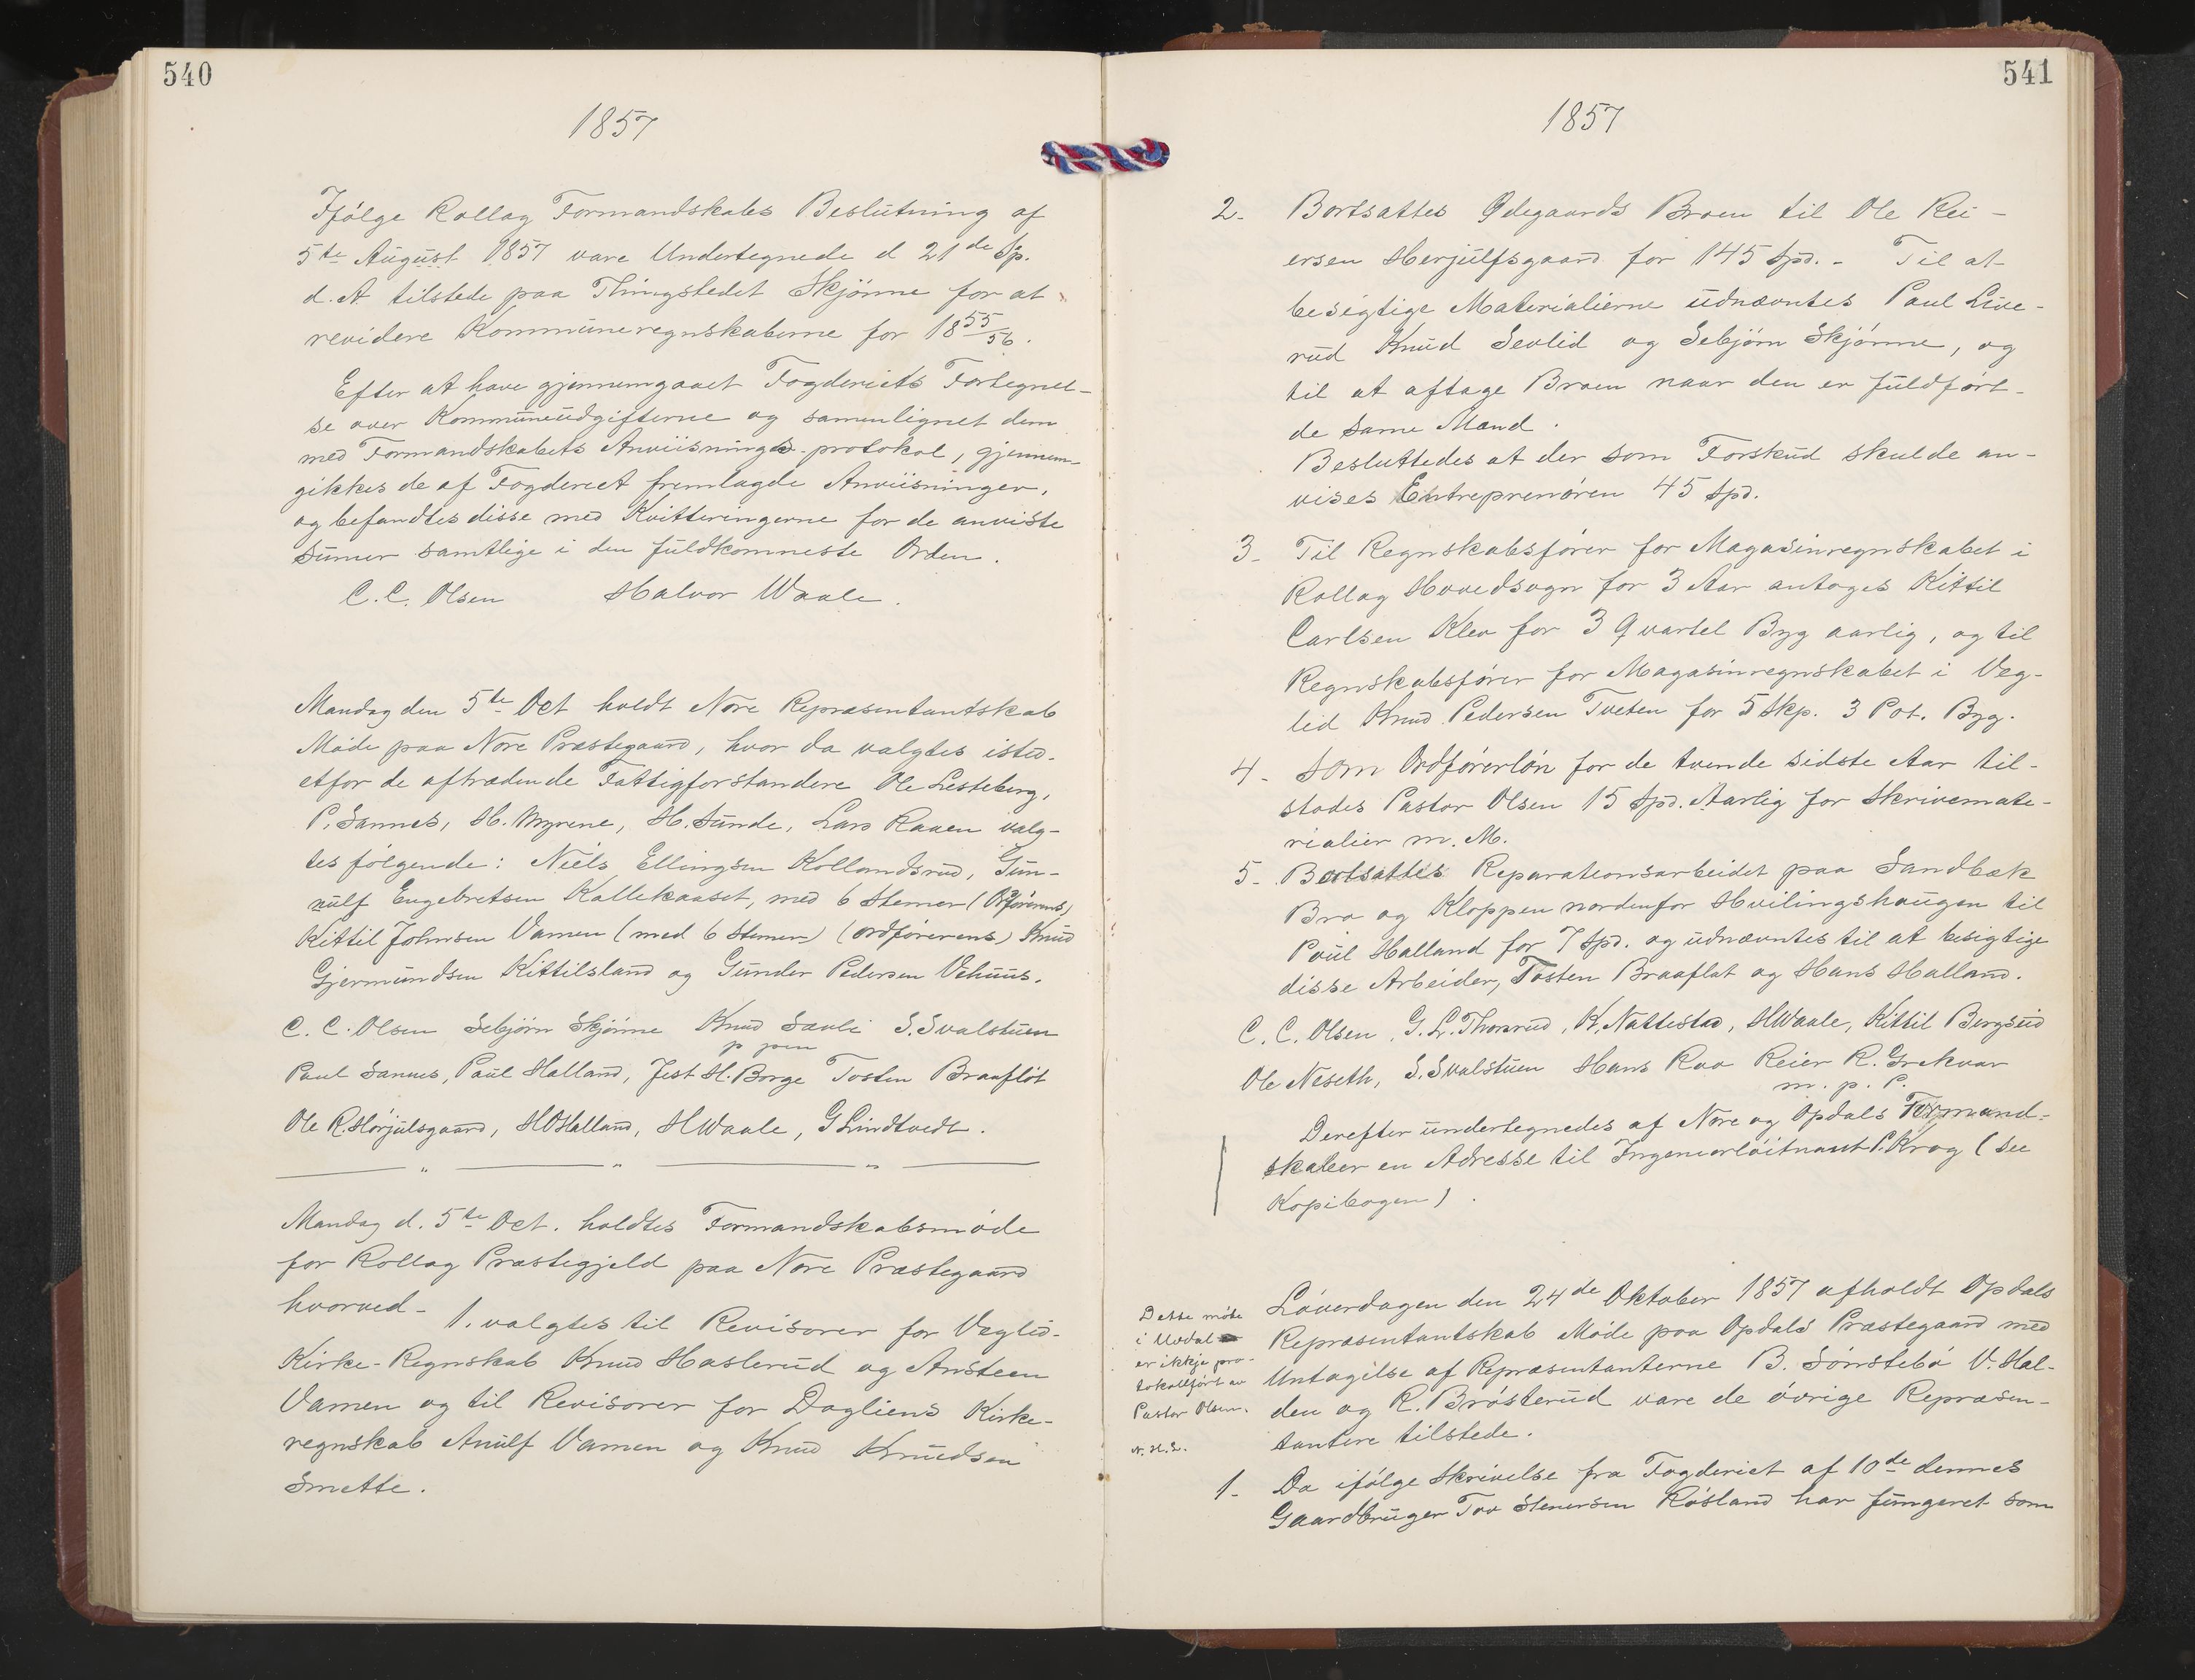 540
1857
Ifølge Rollag Formandskabs Beslutning af
5te August 1857 vare Undertegnede d 21de Sp.
d. A tilstede paa Thingstedet Skjönne for at
revidere Kommuneregnskaberne for 1855/56.
Efter at have gjennemgaaet Fogderiets Fortegnel-
se over Kommuneudgifterne og samenlignet dem
med Formandskabets Anviisnings-protokol, gjennem-
gikkes de af Fogderiet fremlagde Anviisninger,
og befandtes disse med Kvitteringerne for de anviste
Sumer samtlige i den fuldkomneste Orden.
C. C. Olsen Halvor Waale.
Mandag den 5te Oct holdt Nore Repræsentantskab
Möde paa Nore Præstegaard, hvor da valgtes isted-
etfor de aftrædende Fattigforstandere Ole Lesteberg,
P. Sannes, H. Myrene, H. Sunde, Lars Raaen valg-
tes følgende: Niels Ellingsen Kollandsrud, Gun-
nulf Engebretsen Kallekaaset, med 6 Stemer (Ordförerens)
Kittil Johnsen Vamen (med 6 Stemer) (ordförerens) Knud
Gjermundsen Kittilsland og Gunder Pedersen Vehuus.
C. C. Olsen Sebjörn Skjönne Knud Sævli S. Svalstuen
p pen
Paul Sannes, Paul Halland, Jest H. Borge Tosten Braaflöt
Ole R. Hörjulsgaard, HOHalland, HWaale, G Lindtvedt.
Mandag d. 5te Oct. holdtes Formandskabsmöde
for Rollag Præstegjeld paa Nore Præstegaard
hvorved - 1. valgtes til Revisorer for Veglid-
Kirke-Regnskab Knud Haslerud og Ansteen
Vamen og til Revisorer for Dagliens Kirke-
regnskab Anulf Vamen og Knud Knudsen
Smette.
541
1857
2. Bortsattes Ødegaards Broen til Ole Rei-
ersen Herjulfsgaard for 145 Spd. - Til at
besigtige Materialierne udnævntes Paul Live-
rud Knud Sevlid og Sebjörn Skjönne, og
til at aftage Broen naar den er fuldført-
de same Mænd.
Besluttedes at der som Forskud skulde an-
vises Entreprenören 45 Spd.
3. Til Regnskabsfører for Magasinregnskabet i
Rollag Hovedsogn for 3 Aar antoges Kittil
Carlsen Klev for 3 Qvartel Byg aarlig, og til
Regnskabsfører for Magasinregnskabet i Veg-
lid Knud Pedersen Tveten for 5 Skp. 3 Pot. Byg.
4. Som Ordførerlön for de tvende sidste Aar til-
stodes Pastor Olsen 15 Spd. Aarlig for Skrivemate-
rialier m. M.
5. Bortsattes Reparationsarbeidet paa Sandbæk
Bro og Kloppen nordenfor Hvilingshaugen til
Poul Halland for 7 Spd. og udnævntes til at besigtige
disse Arbeider, Tosten Braaflat og Hans Halland.
C. C. Olsen, G. L. Thorsrud, K. Nattestad, HWaale, Kittil Bergsud
Ole Neseth, S. Svalstuen Hans Roo Reier R. Grekvar
m. p. P.
Derefter undertegnedes af Nore og Opdals Formand-
skaber en Adresse til Ingeniørlöitnant P. Krog (see
Kopibogen).
Dette møte
i Uvdal
er ikkje pro-
tokollfört av
Pastor Olsen.
N. H. L.
Löverdagen den 24de Oktober 1857 afholdt Opdals
Repræsentantskab Möde paa Opdals Præstegaard med
Untagelse af Repræsentanterne B. Sönstebö V. Hal-
den og R. Brösterud vare de övrige Repræsen-
tantere tilstede.
1. Da ifölge Skrivelse fra Fogderiet af 10de dennes
Gaardbruger Tov Stenersen Rösland har fungeret som